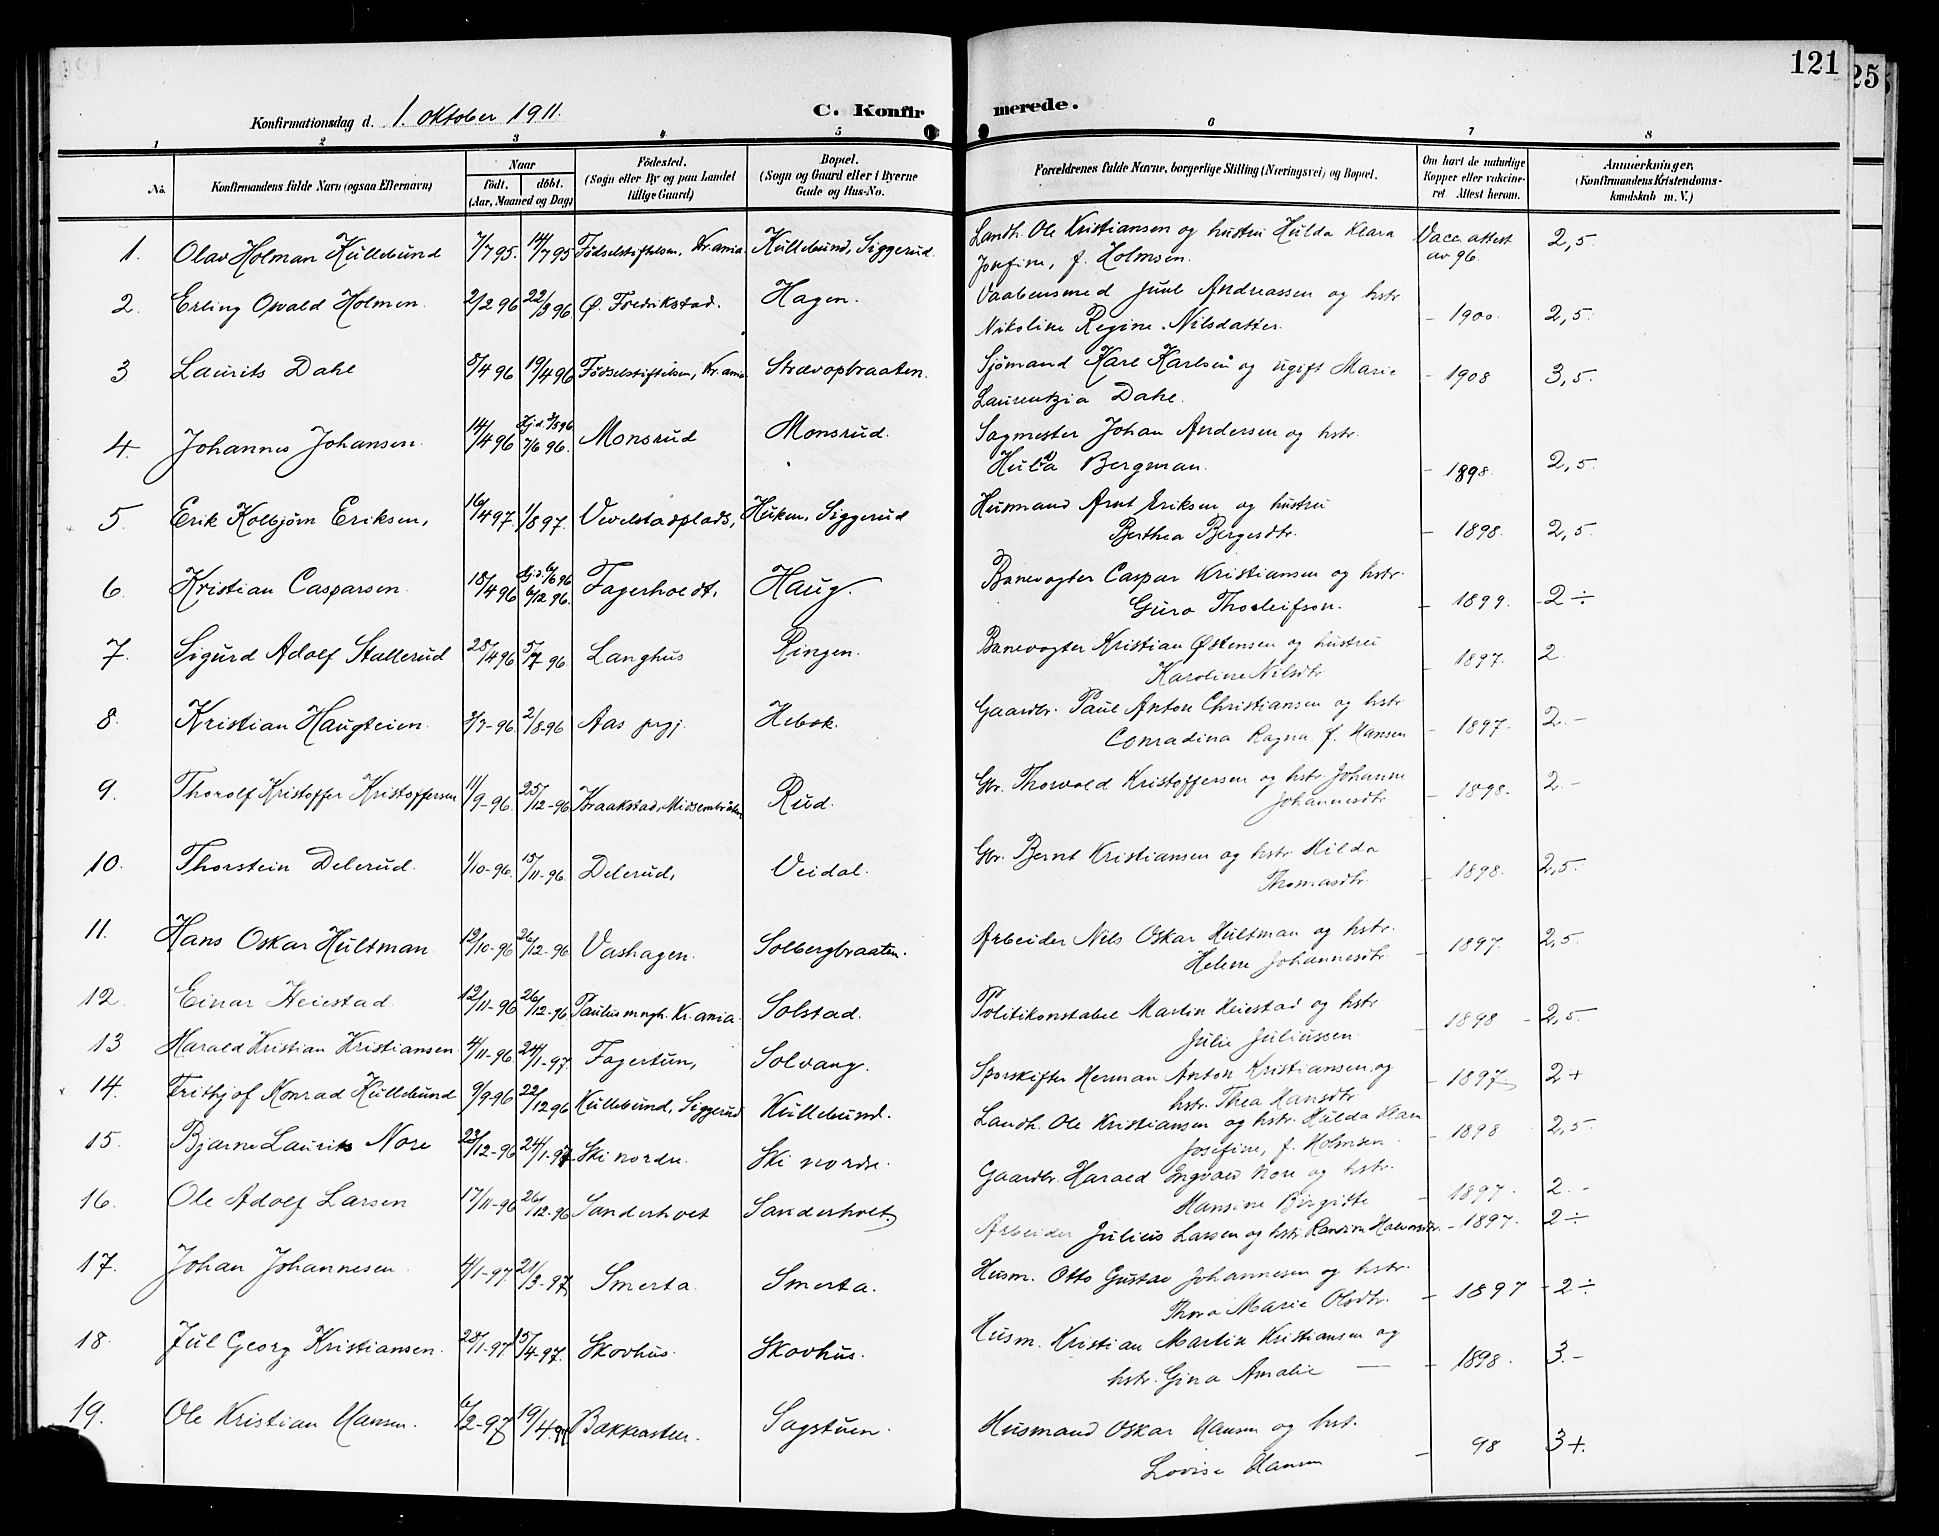 121
25
Konfirmationsdag d. 1. oktober 1911.
C. Konfirmerede.
1 2 3 4 5 6 7 8
No.
Konfirmandens fulde Navn (ogsaa Efternavn)
Naar
födt. döbt.
(Aar, Maaned og Dag)
Födested.
(Sogn eller By og paa Landet
tillige Gaard)
Bopæl.
(Sogn og Gaard eller i Byerne
Gade og Hus-No.
Forældrenes fulde Navne, borgerlige Stilling (Næringsvei) og Bopæl.
Om havt de naturlige
Kopper eller vakcine-
ret Attest herom.
Anmærkninger,
(Konfirmandens Kristendoms-
kundskab m. V.)
1. Olav Holman Kullebund 7/7 95. 14/7 95 Fødselsstiftelsen, Kr.ania Kullebund, Siggerud. Landh. Ole Kristiansen og hustru Hulda Klara Vacc. attest 2,5
Josefine, f. Holmsen. av 96.
2. Erling Osvald Holmen. 2/2 96 22/3 96. Ø. Fredrikstad. Hagen. Vaabensmed Juul Andreassen og hstr
Nikoline Regine Nilsdatter. - 1900. 2,5.
3 Laurits Dahl 8/4 96 19/4 96 Fødselsstiftelsen, Kr.ania Strævopbraaten. Sjømand Karl Karlsen og ugift Marie - 1908 3,5.
Laurentzia Dahl.
4. Johannes Johansen. 14/4 96 Hj.d. 3/5 96 7/6 96. Monsrud Monsrud. Sagmester Johan Andersen og hstr.
Hulda Bergman. - 1898. 2,5.
5. Erik Kolbjørn Eriksen, 16/4 97. 1/8 97. Vevelstadplads, Huken, Siggerud Husmand Arnt Eriksen og hustru
Berthea Bergesdtr. - 1898. 2,5.
6. Kristian Casparsen. 18/4 96 6/12 96. Fagerholdt, Haug. Banevogter Caspar Kristiansen og hstr.
Guro Thorleifson. - 1899. 2 ÷
7. Sigurd Adolf Stallerud 28/4 96 5/7 96 Langhus Ringen. Banevogter Kristian Østensen og hustru
Karoline Nilsdtr - 1897. 2
8. Kristian Haugteien. 3/7-96 2/8-96 Aas prgj. Hebok. Gaardbr. Paul Anton Christiansen og hstr
Conradina Ragna f. Hansen - 1897. 2.-
9. Thorolf Kristoffer Kristoffersen 11/9-96. 25/12-96 Kraakstad, Rud. Gbr. Thorvald Kristoffersen og hstr. Johanne
Johannesdtr - 1898. 2.-
10. Thorstein Delerud. 1/10-96. 15/11-96. Delerud, Veidal. Gbr. Bernt Kristiansen og hstr. Hilda
Thomasdtr. - 1898. 2,5.
11. Hans Oskar Hultman 12/10-96 26/12-96 Vashagen. Solbergbraaten. Arbeider Nils Oskar Hultman og hstr.
Helene Johannesdtr. - 1897. 2,5.
12. Einar Heiestad 12/11-96 26/12-96 Paulus mngh. Kr.ania. Solstad. Politikonstabel Martin Heiestad og hstr
Julie Juliussen - 1898 - 2,5.
13 Harald Kristian Kristiansen 4/11-96. 24/1-97. Fagertun, Solvang. Sporskifter Herman Anton Kristiansen og - 1897 2+
hstr. Thea Hansdtr
14. Frithjof Konrad Kullebund 9/9-96 22/12 96 Kullebund, Siggerud Kullebund. Landh. Ole Kristiansen og hstr. Hulda Klara - 1898 2,5.
Josefine, f. Holmsen.
15. Bjarne Laurits Nore 23/12-96 24/1-97 Ski nordre. Ski nordre. Gaardbr. Harald Ingvald Nore og hstr. - 1897. 2.-
Hansine Birgitte
16. Ole Adolf Larsen 17/11-96 26/12-96 Sanderholt Sanderholt. Arbeider Julius Larsen og hstr. Randine - 1897. 2÷
17. Johan Johannesen. 4/1-97. 21/3-97. Smerta. Smerta. Husm. Otto Gustav Johannesen og hstr.
Thora Marie Olsdtr. - 1897 - 2÷
18. Jul Georg Kristiansen. 28/1-97 15/4-97. Skovhus. Skovhus. Husm. Kristian Martin Kristiansen og
hstr. Gina Amalie — - 1898. 3.-
19. Ole Kristian Hansen. 6/2-97 19/4.97 Bakkasteu. Sagstuen. Husmand Oskar Hansen og hst.
Lovise Hansen - 98 3+.